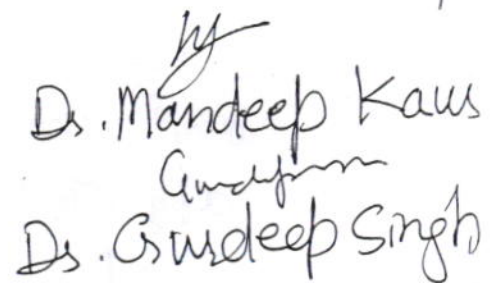 by
Dr. Mandeep Kaur
Dr. Gursdeep Singh